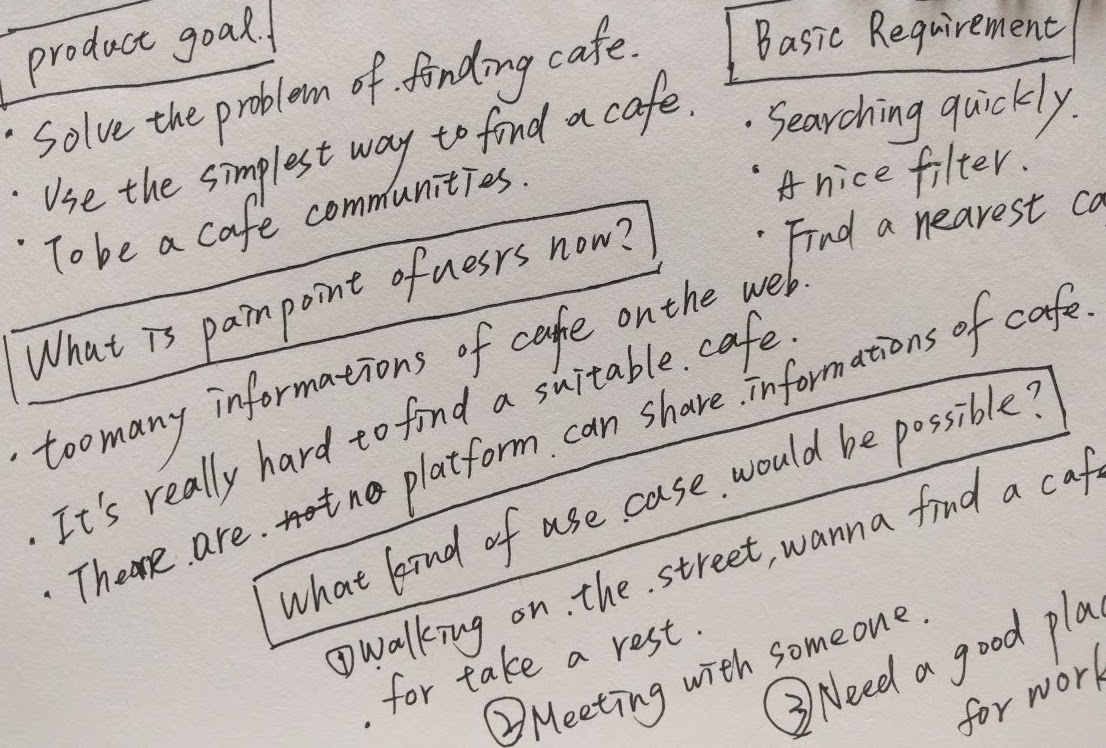 product goal.
· Solve the problem of finding cafe.
· Use the simplest way to find a cafe.
· To be a cafe communities.
Basic Requirement
· Searching quickly.
· A nice filter.
· Find a nearest ca
What is painpoint of uesrs now?
· too many informations of cafe on the web.
· It's really hard to find a suitable cafe.
· There are not no platform can share informations of cafe.
What kind of use case would be possible?
① Walking on the street, wanna find a cafe
· for take a rest.
② Meeting with someone.
③ Need a good plac
for work